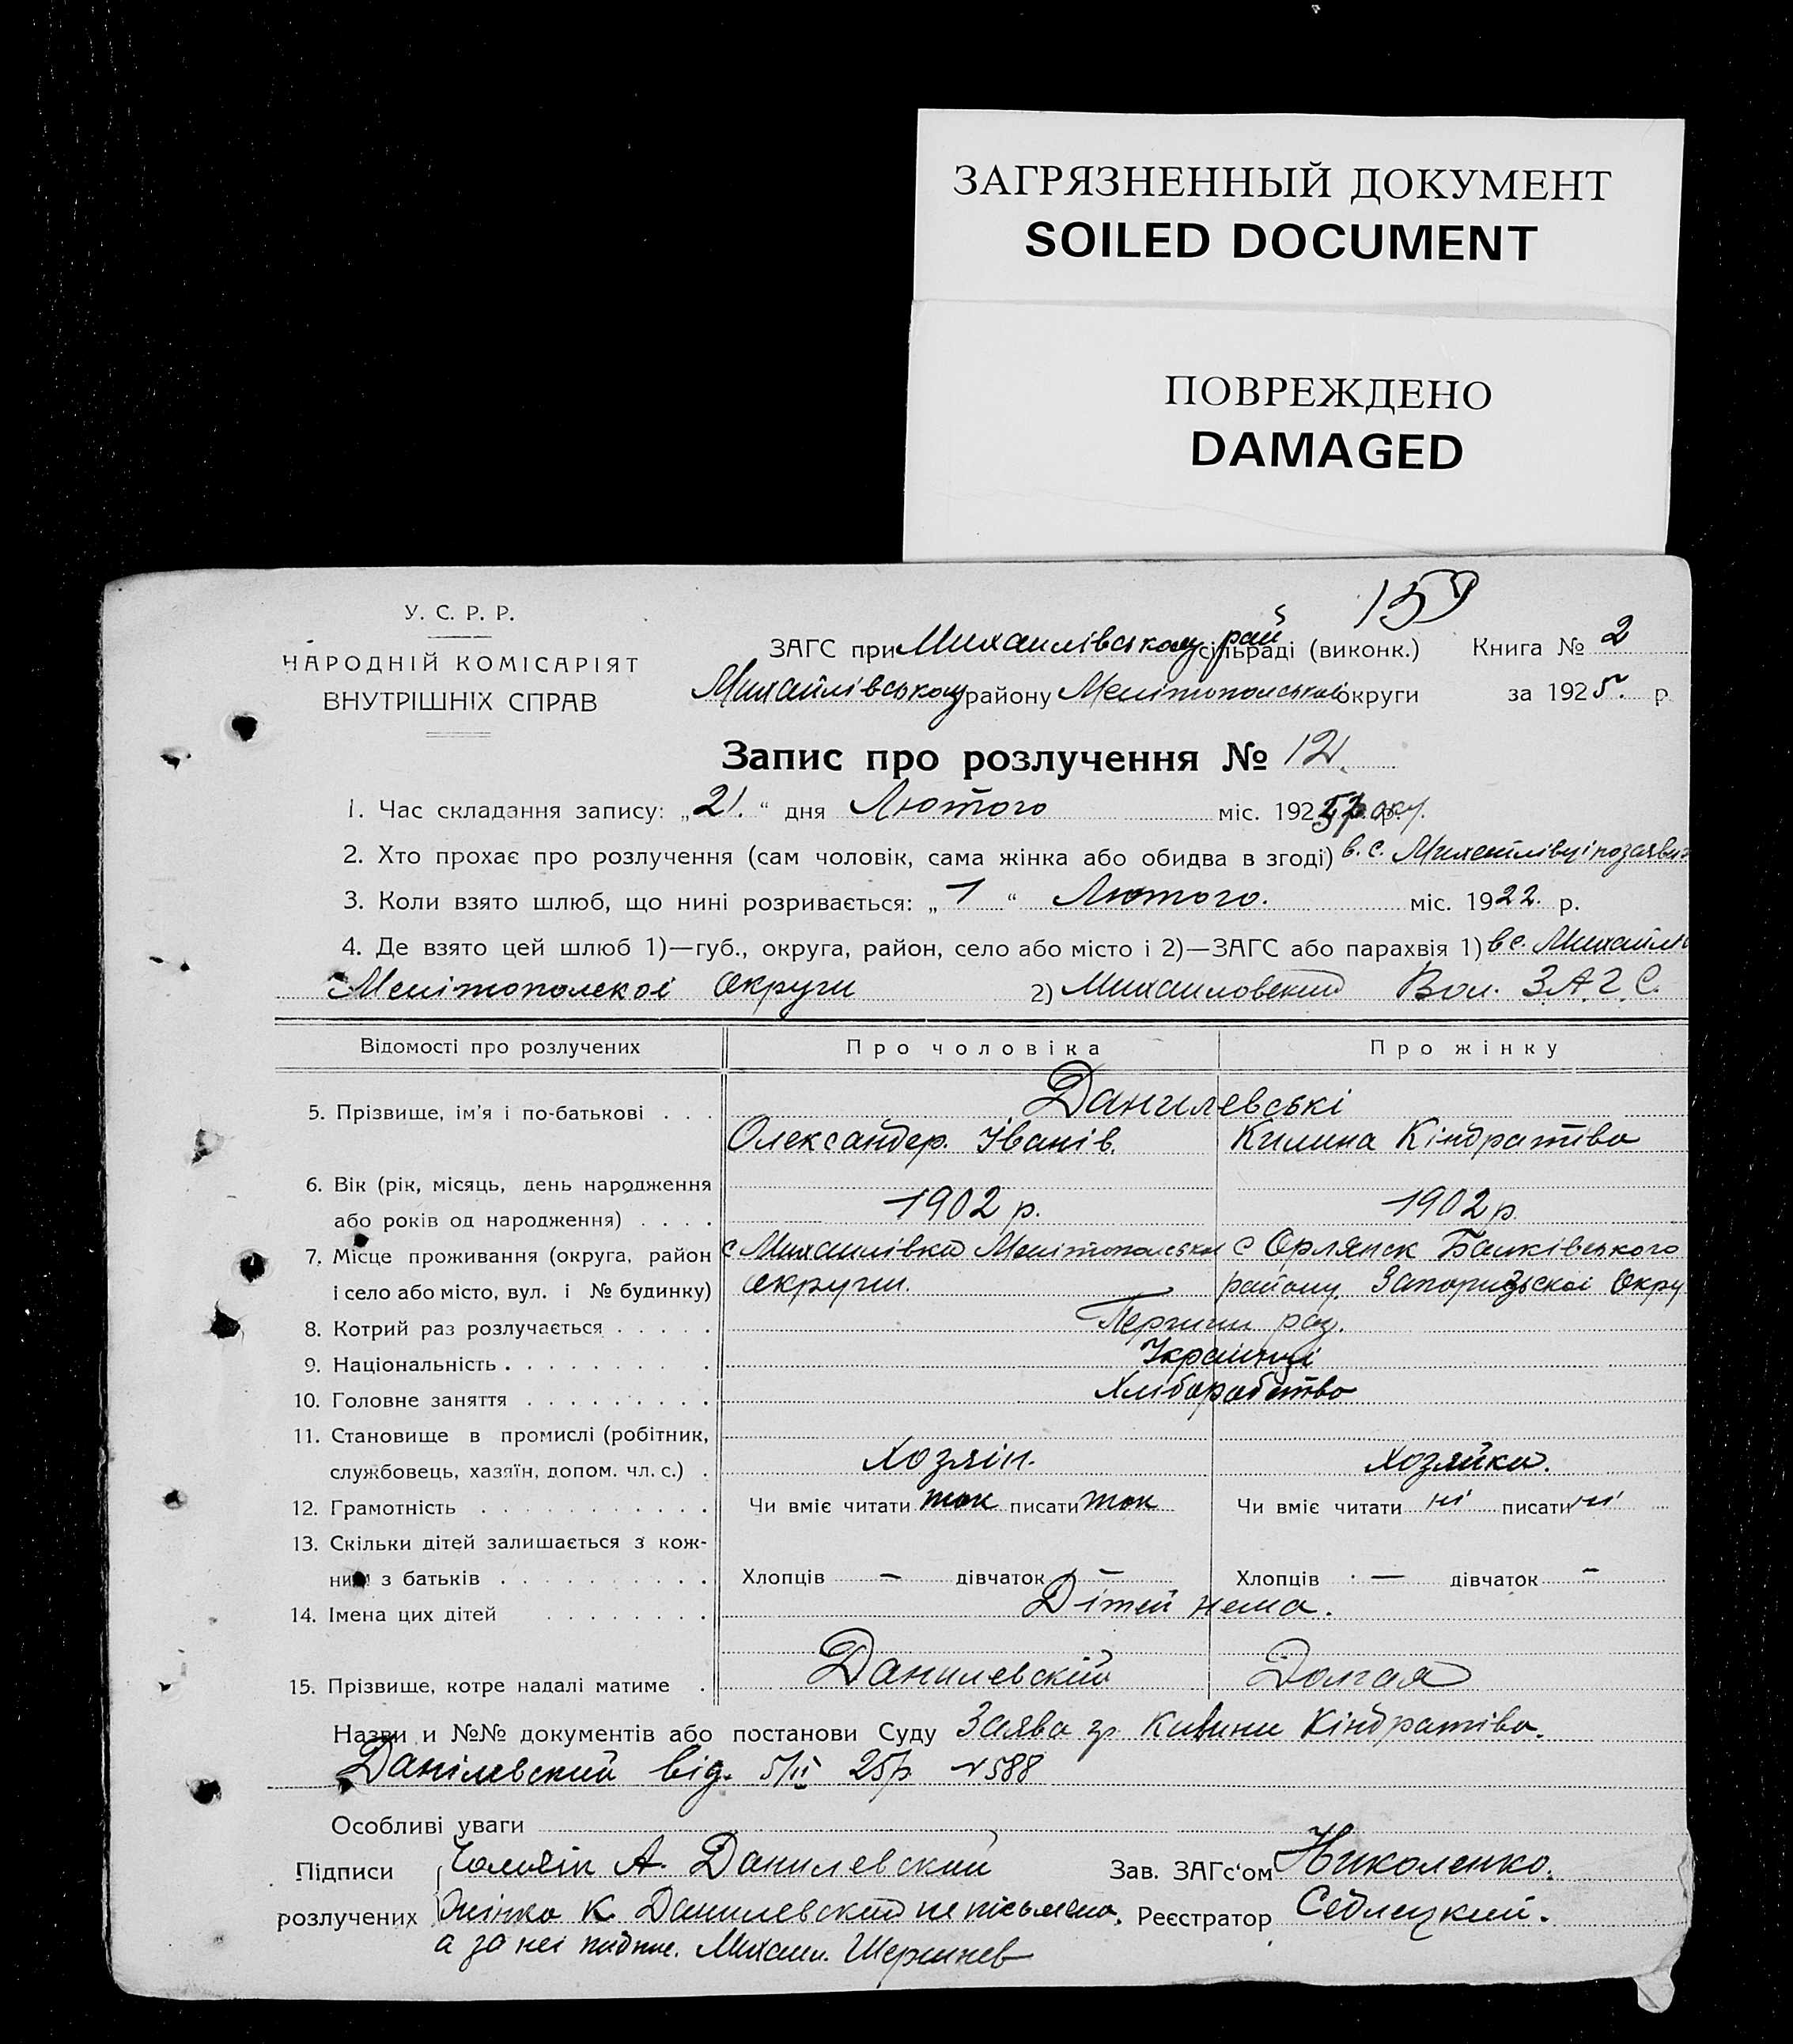 ЗАГРЯЗНЕННЫЙ ДОКУМЕНТ
SOILED DOCUMENT
ПОВРЕЖДЕНО
DAMAGED
159
У. С. Р. Р.
НАРОДНІЙ КОМІСАРІЯТ
ВНУТРІШНІХ СПРАВ
ЗАГС при Михаилівському рай сільраді (виконк.) Книга № 2
Михайлівському району Мелітопольської округи за 1925. р
Запис про розлучення № 12.
1. Час складання запису: „21.“ дня Лютого міс. 1925 року.
2. Хто прохає про розлучення (сам чоловік, сама жінка або обидва в згоді) в. с.
3. Коли взято шлюб, що нині розривається: „1“ Лютого. міс. 1922. р.
4. Де взято цей шлюб 1)—губ., округа, район, село або місто і 2)—ЗАГС або парахвія 1) в с. Михайлів
Мелітополскоі Округи 2) Михаиловский Вол. З.А.Г.С.
Відомості про розлучених Про чоловіка Про жінку
Данилевські
5. Прізвище, ім'я і по-батькові . . .
Олександер. Іванів. Килина Кіндратіва
6. Вік (рік, місяць, день народження
або років од народження) . . . . 1902 р. 1902 р
7. Місце проживання (округа, район с Михаилівка Мелітопольська с Орлянск Балківського
і село або місто, вул. і № будинку) округи. району Запоризьскаі Окру
8. Котрий раз розлучається . . . . . Перший раз.
9. Національність . . . . . . . . . Українці
10. Головне заняття . . . . . . . . . Хлібаробство
11. Становище в промислі (робітник,
службовець, хазяїн, допом. чл. с.) . Хозяін. Хозяйка.
12. Грамотність . . . . . . . . . . . Чи вміє читати так писати так Чи вміє читати ні писати ні
13. Скільки дітей залишається з кож-
ним з батьків . . . . . . . . . . Хлопців — дівчаток — Хлопців — дівчаток —
14. Імена цих дітей . . . . . . . . Дітей нема.
15. Прізвище, котре надалі матиме . Данилевский Долгая
Назви и №№ документів або постанови Суду Заява гр. Килини Кіндратіва.
Данілевский від. 5/II 25р №588
Особливі уваги
Підписи Чоловік А. Данилевский Зав. ЗАГс'ом Николенко.
розлучених Жінка К. Данилевский не письмена. Реєстратор Седлецкий.
а за неі Михаил.